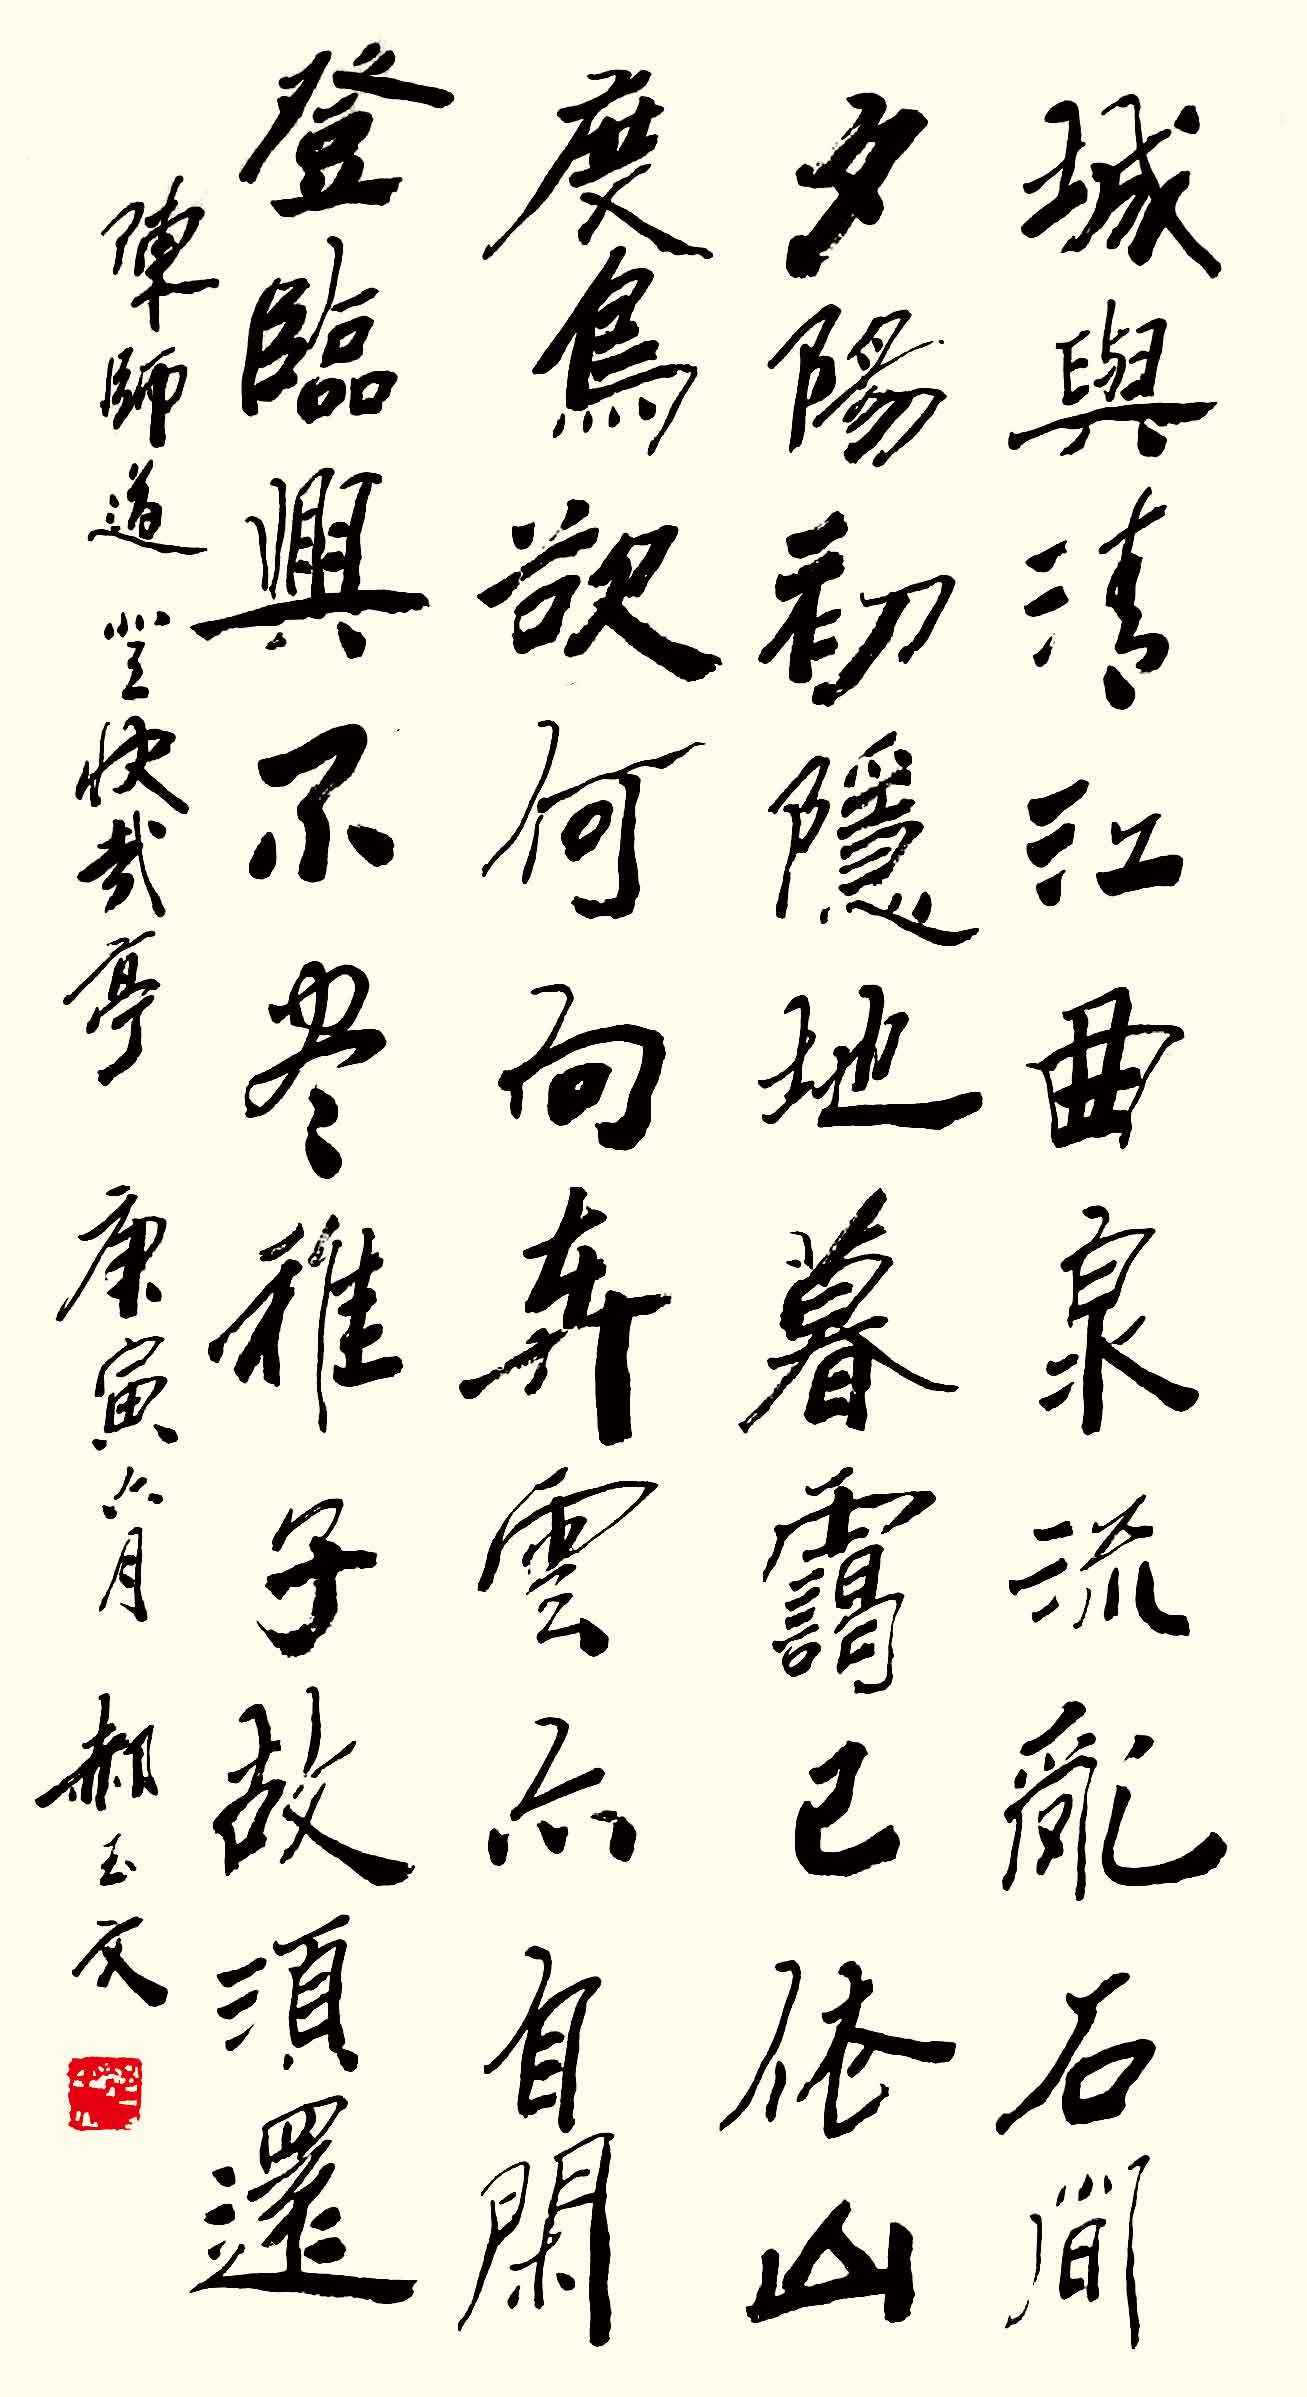 城與清江曲泉流亂石間
夕陽初隱地暮靄已依山
度鳥欲何向奔雲亦自閑
登臨興不尽稚子故須還
陳師道 登快哉亭 庚寅六月 郝玉文